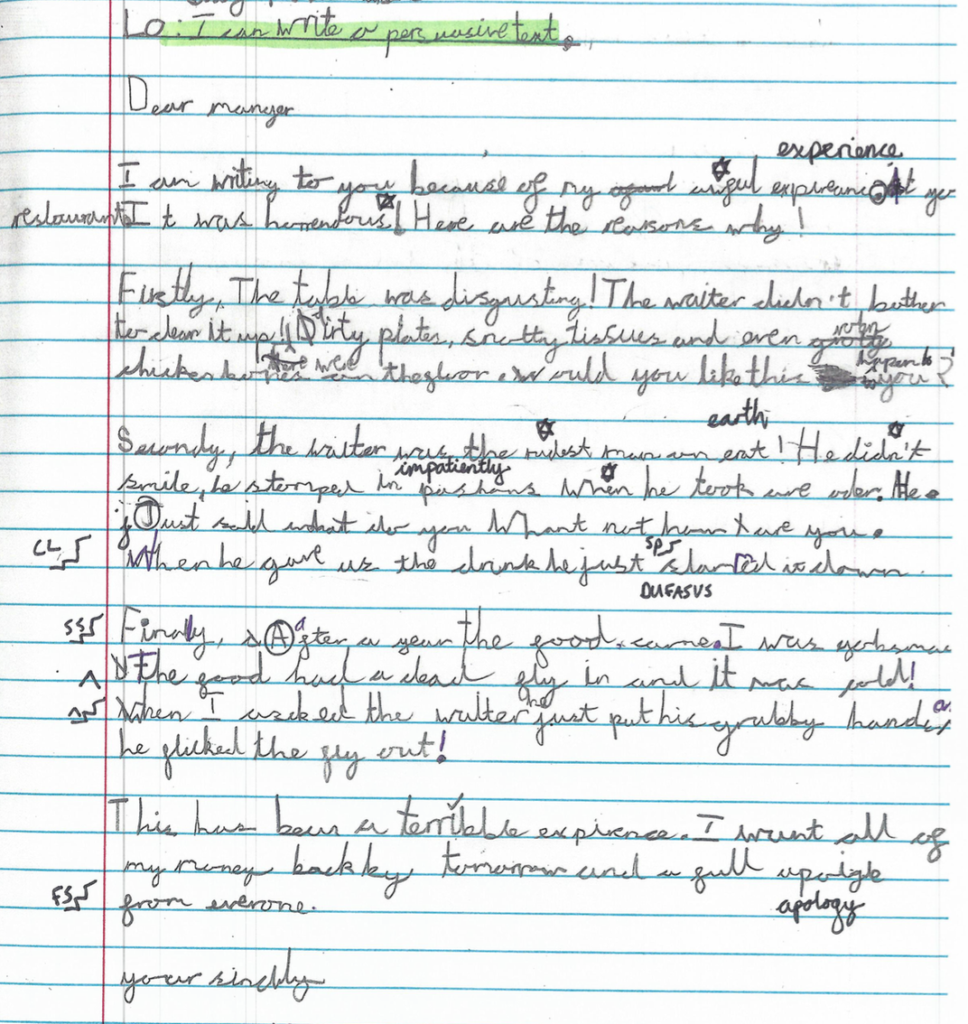 Lo: I can write a persuasive text.
Dear manger
experience
I am writing to you because of my awful expireance at yo
restaurant It was horrendous! Here are the reasons why!
Firstly, The table was disgusting! The waiter didn't bother
to clean it up!! Dirty plates, snotty tissues and even
chicken bones were on the floor. Would you like this happen to you?
earth
Secondy, the waiter was the rudest man on eat! He didn't
impatiently
smile, he stomped in when he took are oder. He
Just said what do you Whant not how are you.
CL When he gave us the drink he just sp slamed it down.
DUFASUS
SS Finally, After a year the food came. I was
^ The food had a dead fly in and it was cold!
^ When I ascked the waiter he just put his grubby hand
he flicked the fly out!
This has been a terribble expirence. I want all of
my money back by tomorrow and a full
FS from everone. apology
your